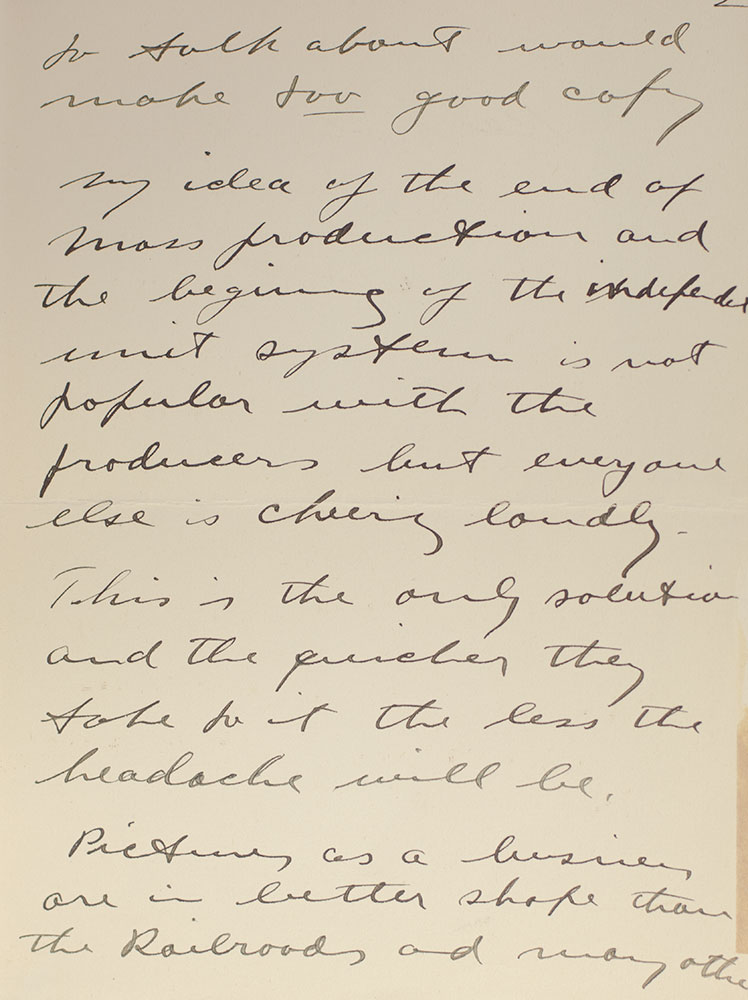 to talk about would
make too good copy
my idea of the end of
mass production and
the begining of the independe
unit system is not
popular with the
producers but everyone
else is cheering loudly.
This is the only solution
and the quicker they
take to it the less the
headache will be.
Pictures as a business
are in better shape than
the Railroads and many othe